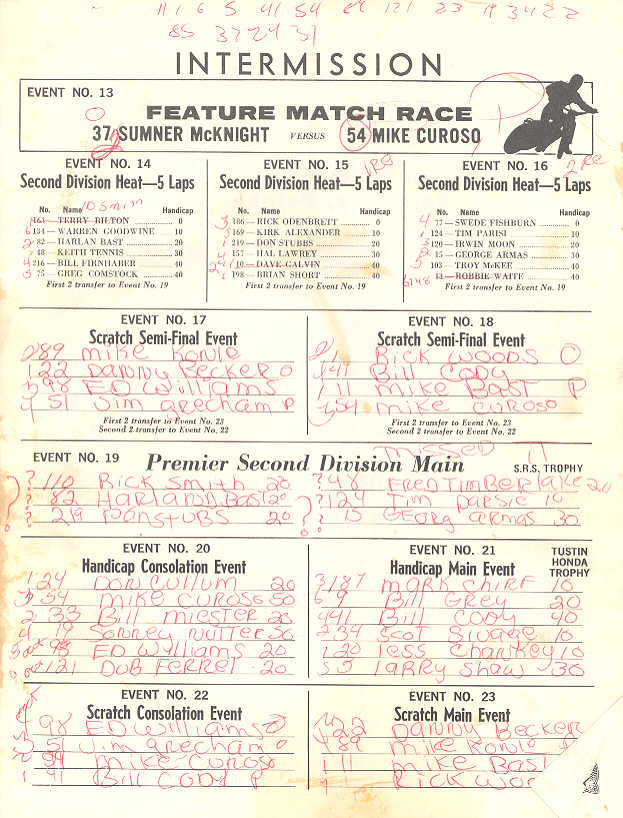 11 1 6 5 41 54 89 121 23 19 34 22
85 37 24 31
INTERMISSION
EVENT NO. 13
FEATURE MATCH RACE
37 SUMNER McKNIGHT VERSUS 54 MIKE CUROSO
EVENT NO. 14
Second Division Heat—5 Laps
No. Name Handicap
163—TERRY BILTON 0
134—WARREN GOODWINE 10
82—HARLAN BAST 20
48—KEITH TENNIS 30
216—BILL FIRNHABER 40
75—GREG COMSTOCK 40
First 2 transfer to Event No. 19
EVENT NO. 15
Second Division Heat—5 Laps
No. Name Handicap
186—RICK ODENBRETT 0
169—KIRK ALEXANDER 10
219—DON STUBBS 20
157—HAL LAWREY 30
10—DAVE GALVIN 40
198—BRIAN SHORT 40
First 2 transfer to Event No. 19
EVENT NO. 16
Second Division Heat—5 Laps
No. Name Handicap
77—SWEDE FISHBURN 0
124—TIM PARISI 10
120—IRWIN MOON 20
15—GEORGE ARMAS 30
103—TROY McKEE 40
11—ROBBIE WAITE 40
First 2 transfer to Event No. 19
EVENT NO. 17
Scratch Semi-Final Event
2 89 Mike Konle
1 22 Danny Becker O
3 98 ED Williams
4 51 Jim grecham P
First 2 transfer to Event No. 23
Second 2 transfer to Event No. 22
EVENT NO. 18
Scratch Semi-Final Event
2 1 Rick Woods O
41 Bill Cody
1 11 Mike Bast P
54 Mike CUROSO
First 2 transfer to Event No. 23
Second 2 transfer to Event No. 22
EVENT NO. 19 Premier Second Division Main S.R.S. TROPHY
MISSED IT
? 110 Rick Smith 20
? 82 Harland Bast 20
? 219 Don STUBS 20
? 48 FRED TIMBERLAKE 20
? 124 Tim Parsie 10
? 15 GEORG armas 30
EVENT NO. 20
Handicap Consolation Event
1 24 Don Cullum 20
3 54 Mike CUROSO 50
2 33 Bill miester 20
4 19 Sonney nutter 30
98 ED Williams 20
121 DUB FERREL 20
EVENT NO. 21
Handicap Main Event
TUSTIN
HONDA
TROPHY
3 187 Mark Chirf 10
6 9 Bill Grey 20
4 41 Bill Cody 40
2 34 Scot Sivage 10
1 20 less Chankey 10
5 5 larry Shaw 30
EVENT NO. 22
Scratch Consolation Event
98 ED Williams O
51 Jim grecham O
54 Mike CUROSO
1 41 Bill CODY P
EVENT NO. 23
Scratch Main Event
22 Danny Becker
89 Mike Konle
1 11 Mike Bast
1 Rick Wo